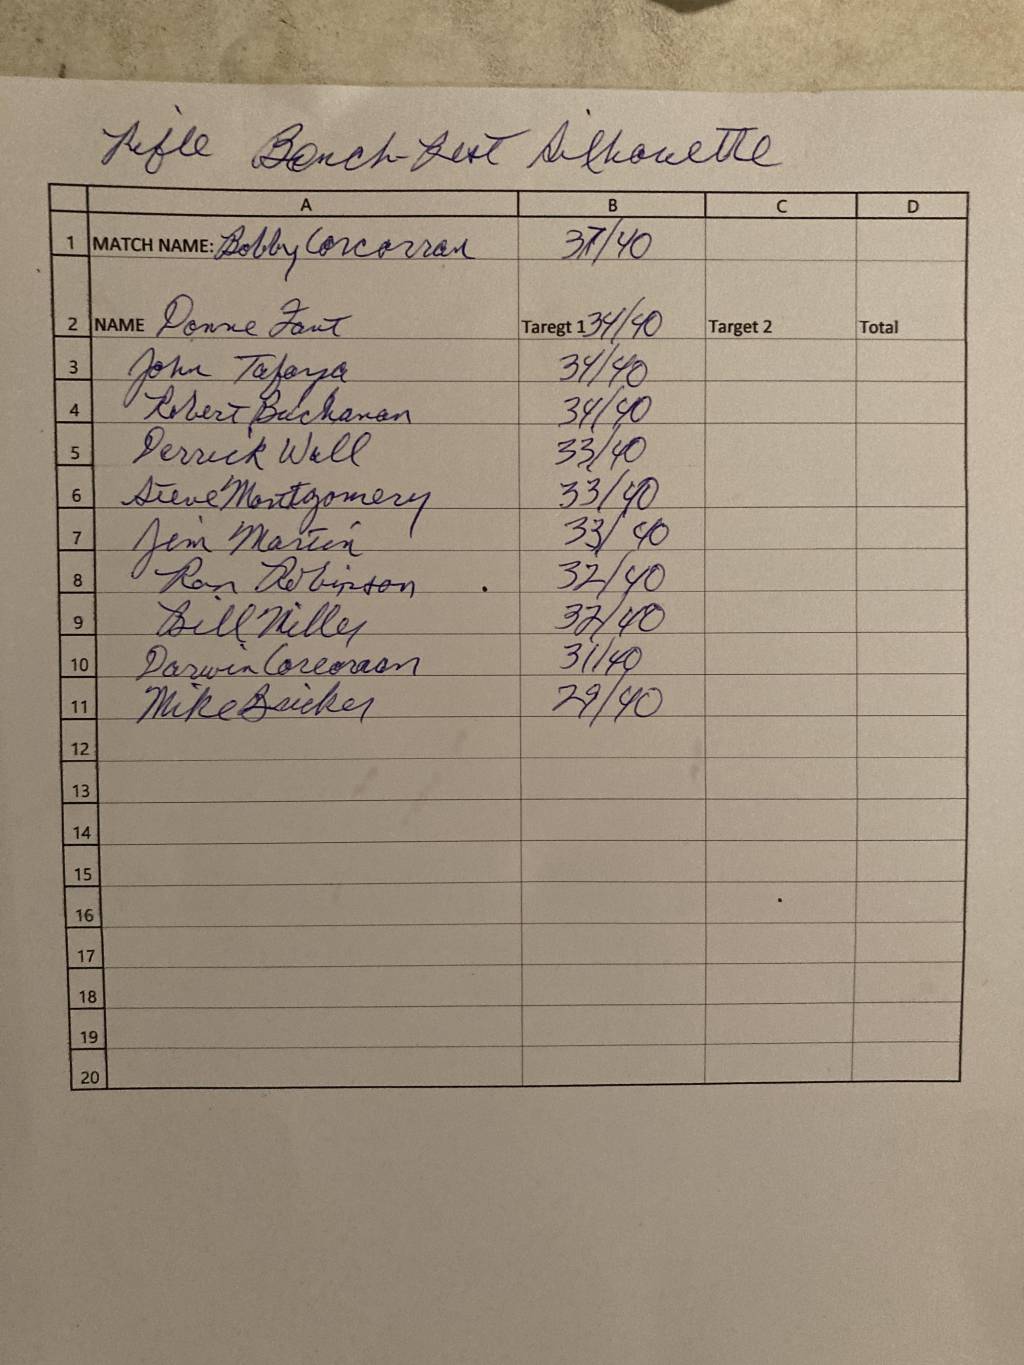 Rifle Bench-Rest Silhouette
A B C D
1 MATCH NAME: Bobby Corcorran 37/40
2 NAME Donne Fant Taregt 1 34/40 Target 2 Total
3 John Tafoya 34/40
4 Robert Buchanan 34/40
5 Derrick Wall 33/40
6 Steve Montgomery 33/40
7 Jim Martin 33/40
8 Ron Robinson 32/40
9 Bill Miller 32/40
10 Darwin Corcoraan 31/40
11 Mike 29/40
12
13
14
15
16
17
18
19
20